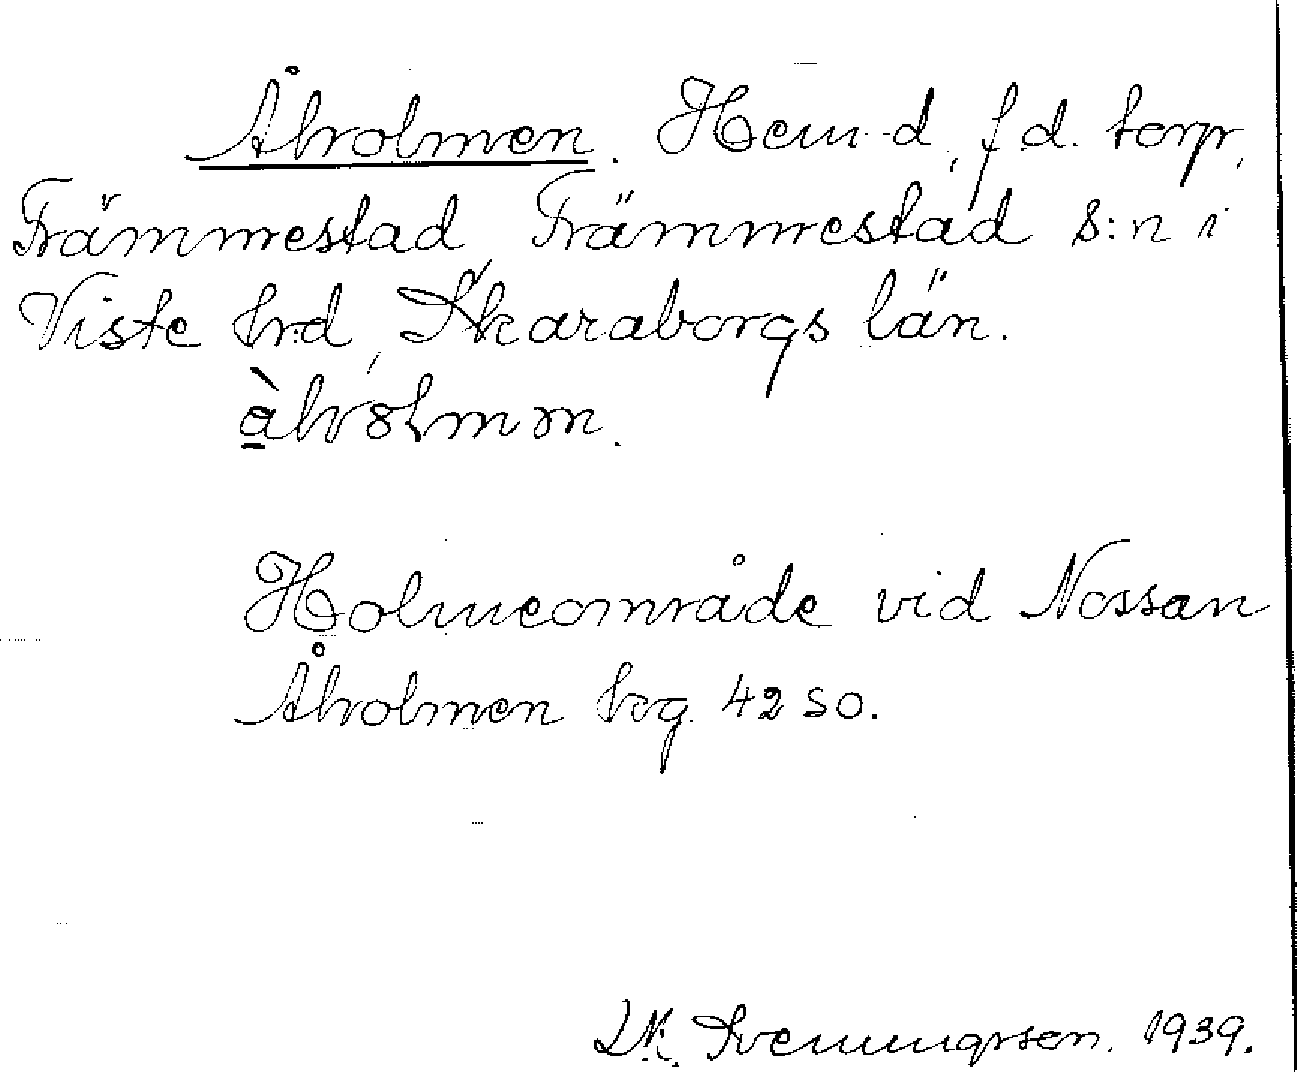 Åholmen. Hem-d, f.d. torp,
Främmestad, Främmestad s:n i
Viste hrd, Skaraborgs län.
Holmeområde vid Nossan
Åholmen 42 SO.
Svenungsson. 1939.